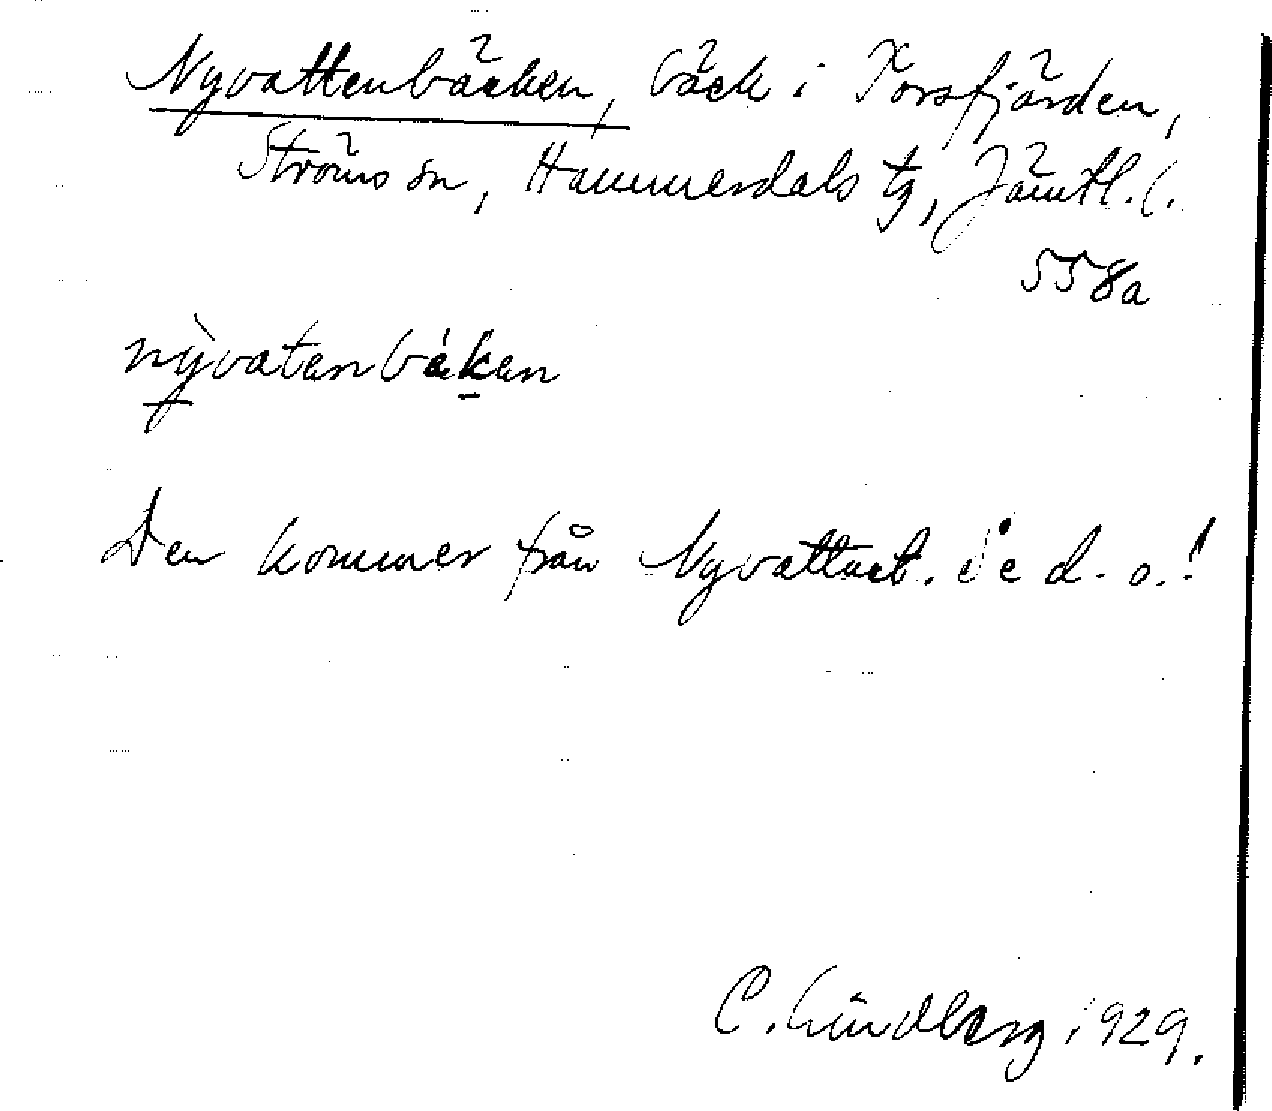 Nyvattenbäcken, bäck i Torsfjärden,
Ströms sn, Hammerdals tg, Jämtl. l.
558a
nỳvatenbækan
Den kommer från Nyvattnet. Se d. o.!
C. Lindberg 1929.